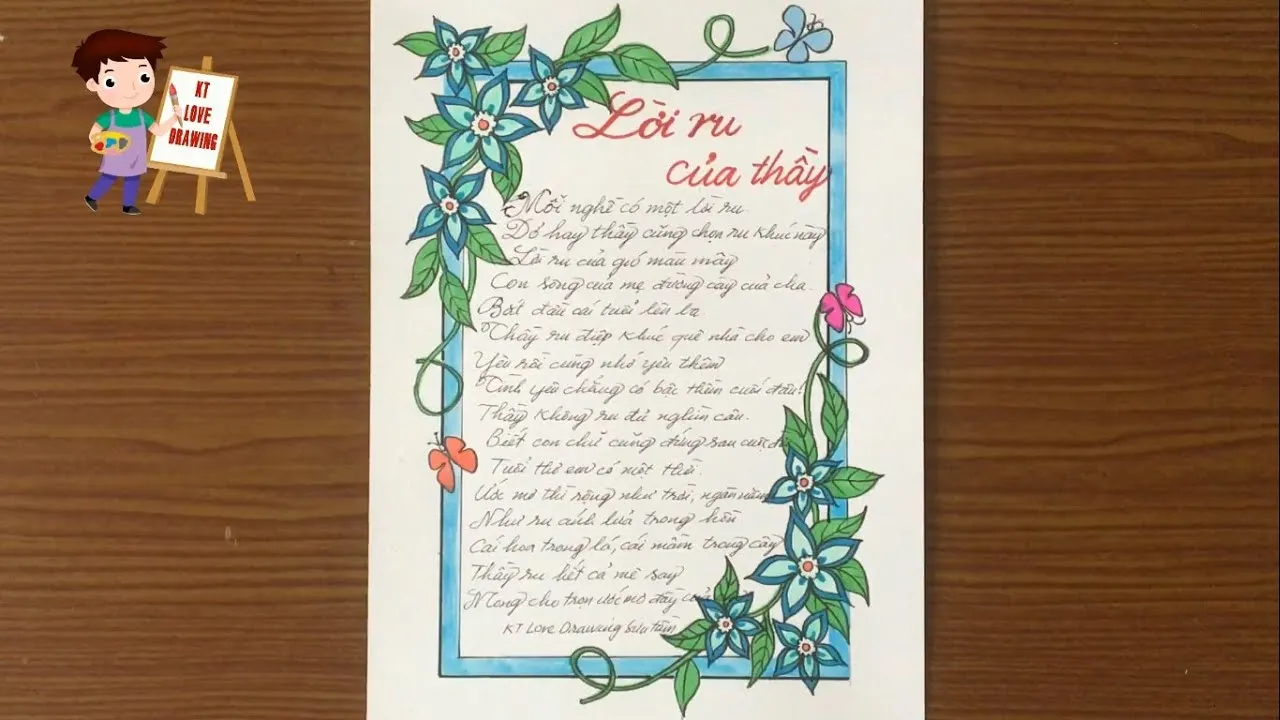 KT
LOVE
DRAWING
Lời ru
của thầy
Mỗi nghề có một lời ru
Dở hay thầy cũng chọn ru khúc này
Lời ru của gió màu mây
Con sông của mẹ đường cày của cha
Bắt đầu cái tuổi lên ba
Thầy ru điệp khúc quê nhà cho em
Yêu rồi cũng nhớ yêu thêm
Tình yêu chẳng có bậc thềm cuối đâu!
Thầy không ru đủ nghìn câu
Biết con chữ cũng đứng sau cuộc
Tuổi thơ em có một thời
Ước mơ thì rộng như trời, ngàn năm
Như ru ánh lửa trong hồn
Cái hoa trong lá, cái mầm trong cây
Thầy ru hết cả mê say
Mong cho trọn ước mơ đầy
KT Love Drawing Sưu tầm